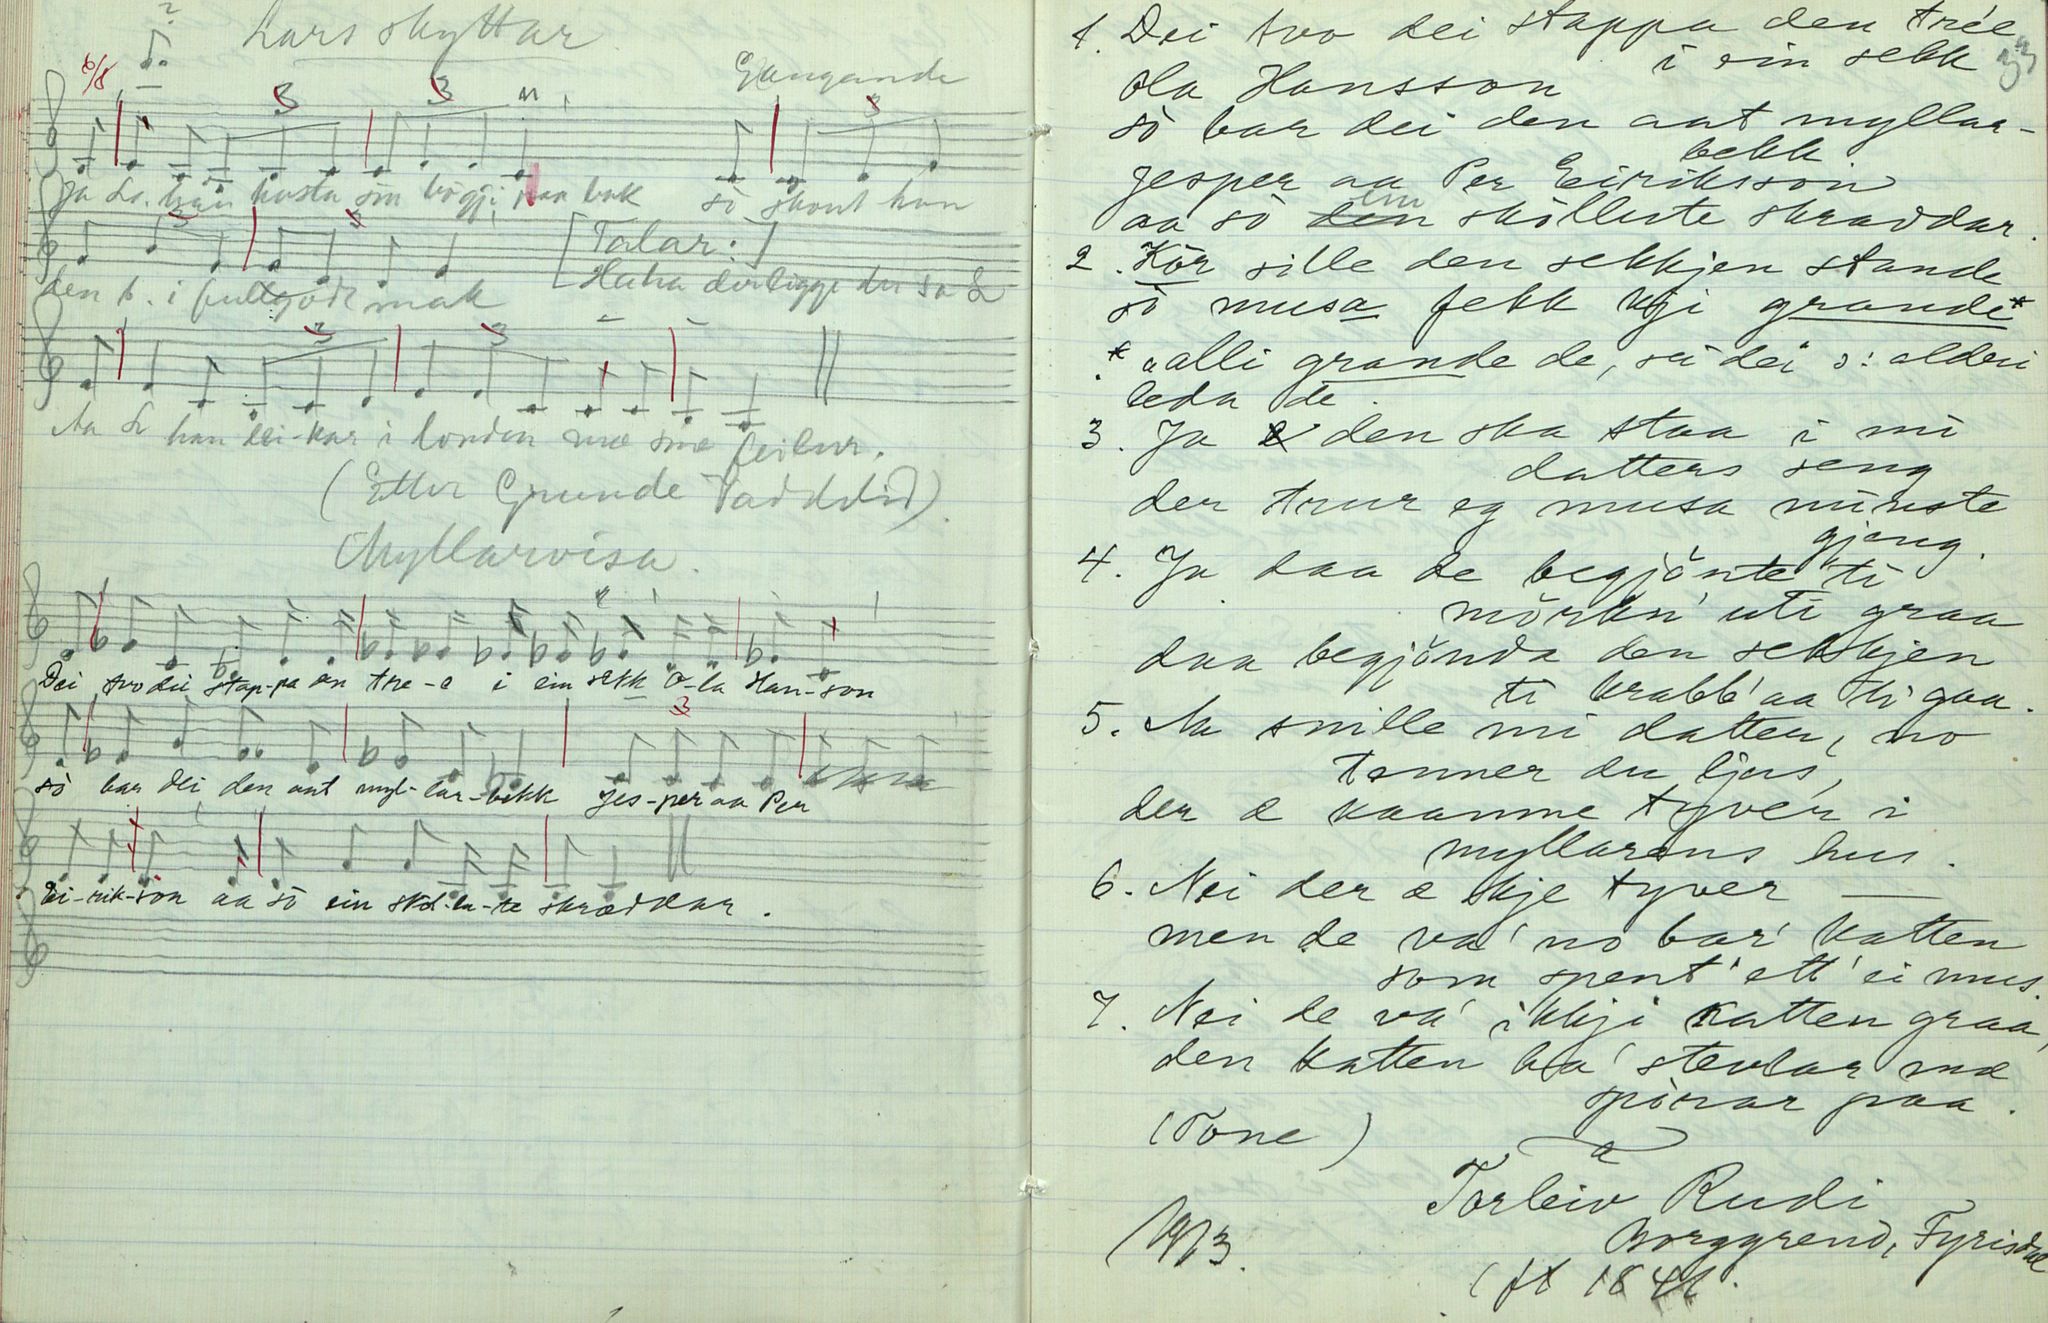 ?
Lars skyttar
6/8
Gangande
3 3 3
Ja L. han kasta sin bögji paa bak sò skout han
den b. i fullgode mak
[Talar:]
Haha der ligge du sa L
3 3
Aa L han lei-kar i londen mæ sine
(Etter Gunde)
Myllarvisa.
Dei tvo dei stap-pa en tre-e i ein sekk O-la Han-son
3
sò bar dei den aat myl-lar-bekk Jes-per aa Per
Ei-rik-son aa sò ein sköl-lu-te skræddar.
33
1. Dei tvo dei stappa den trée
i ein sekk
Ola Hansson
sò bar dei den aat myllar-
bekk
Jesper aa Per Eiriksson
ein
aa sò den skölleste skraddar.
2. Kör sille den sekkjen stande
sò musa fekk kji grande*
* aalli grande de, sei dei ɔ: alderi
leda de.
3. Ja den ska staa i mi
datters seng
der trur eg musa minste
gjeng.
4. Ja daa de begjönte ti
mörkn' uti graa
daa begjönda den sekkjen
ti krabb' aa ti gaa.
5. Aa snille mi datter, no
tenner du ljos,
der æ kaamne tyver i
myllarens hus.
6. Nei der æ kje tyver —
men de va' no bar' katten
som spent' ett' ei mus.
7. Nei de va' ikkji katten graa,
den katten ha' stevlar mæ
sporar paa.
(Tone)
a
Torleiv Rudi
Borggrend, Fyrisdal
1913.
(ft 1841.